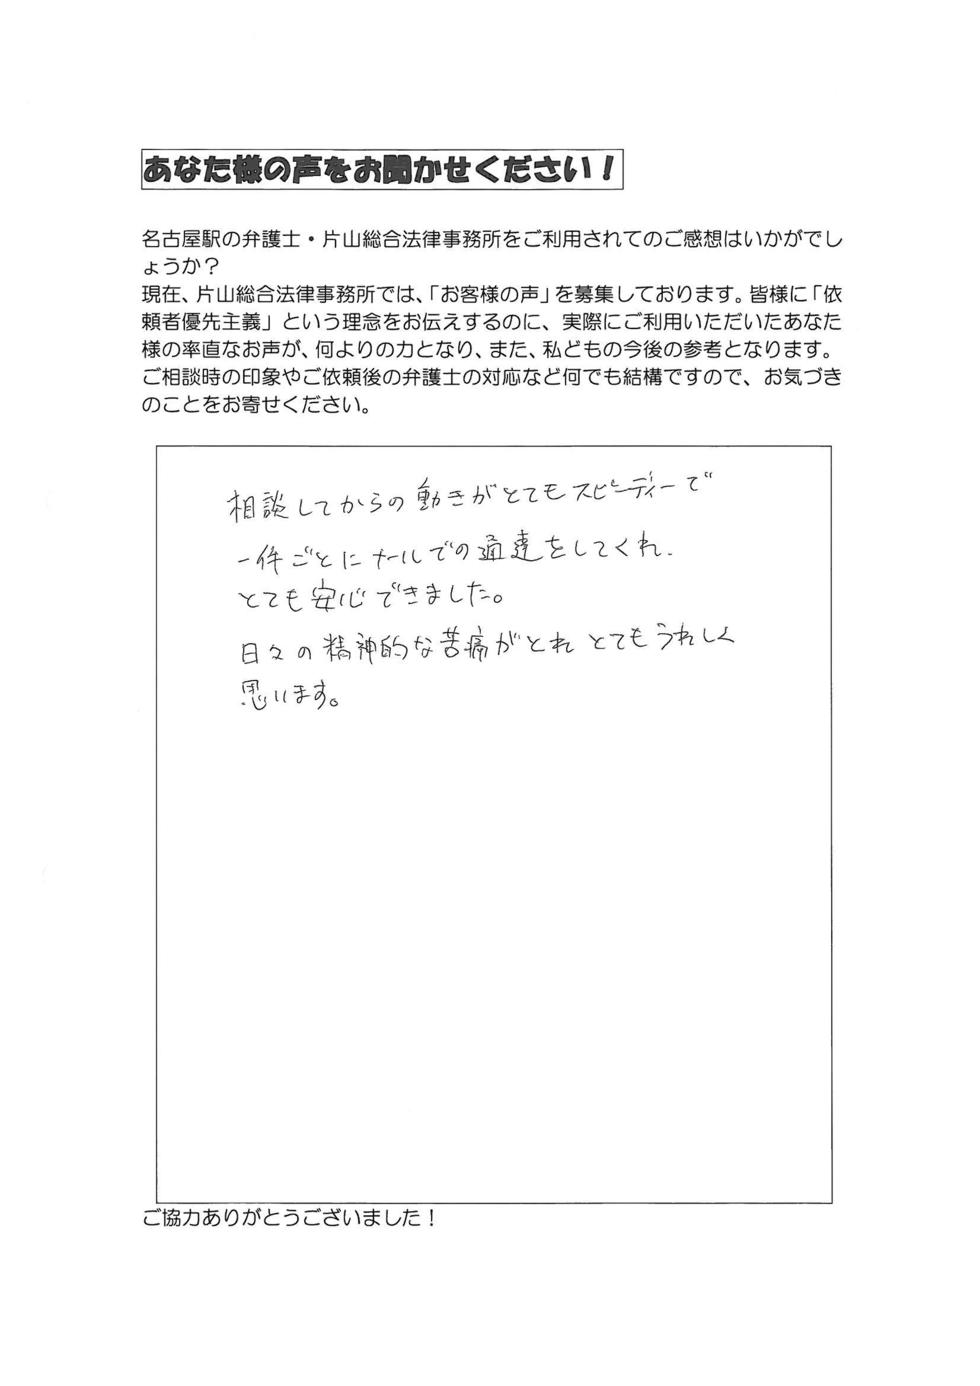 あなた様の声をお聞かせください！
名古屋駅の弁護士・片山総合法律事務所をご利用されてのご感想はいかがでし
ょうか？
現在、片山総合法律事務所では、「お客様の声」を募集しております。皆様に「依
頼者優先主義」という理念をお伝えするのに、実際にご利用いただいたあなた
様の率直なお声が、何よりの力となり、また、私どもの今後の参考となります。
ご相談時の印象やご依頼後の弁護士の対応など何でも結構ですので、お気づき
のことをお寄せください。
相談してからの動きがとてもスピーディーで
一件ごとにメールでの通達をしてくれ、
とても安心できました。
日々の精神的な苦痛がとれとてもうれしく
思います。
ご協力ありがとうございました！